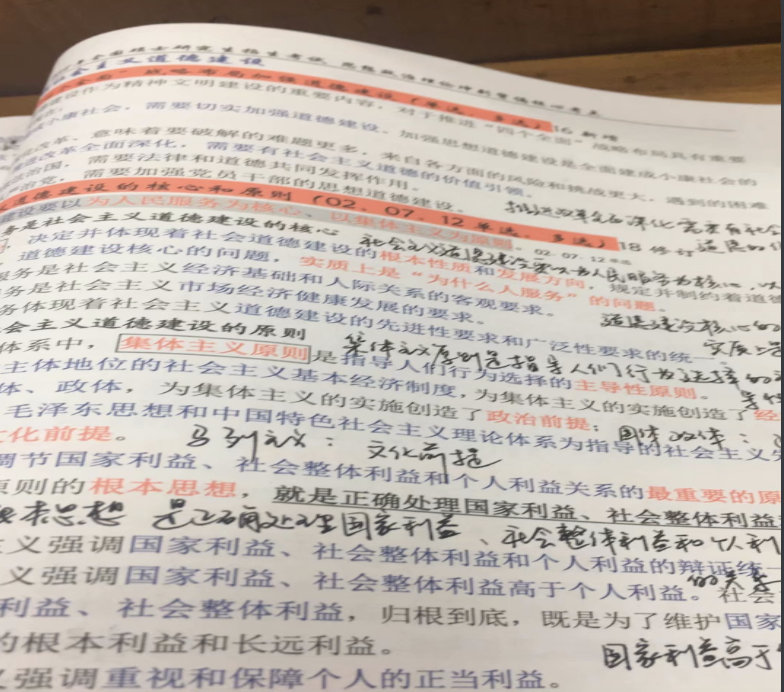 全国硕士研究生招生考试 思想政治理论冲刺背诵核心考点
社会主义道德建设
战略布局加强道德建设（单选、多选）16 新增
建设作为精神文明建设的重要内容，对于推进“四个全面”战略布局具有重要
小康社会，需要切实加强道德建设。加强思想道德建设是全面建成小康社会的
改革，意味着要破解的难题更多，来自各方面的风险和挑战更大，遇到的困难
改革全面深化，需要有社会主义道德的价值引领。
治国，需要法律和道德共同发挥作用。
治党，需要加强党员干部的思想道德建设。
推进改革全面深化需要有社会
道德建设的核心和原则（02、07、12 单选、多选）18 修订
道德的价
建设要以为人民服务为核心，以集体主义为原则。02. 07. 12 单选
务是社会主义道德建设的核心 社会主义道德建设要以为人民服务为核心，以
，决定并体现着社会道德建设的根本性质和发展方向，规定并制约着道德
道德建设核心的问题，实质上是“为什么人服务”的问题。
服务是社会主义经济基础和人际关系的客观要求。
务是社会主义市场经济健康发展的要求。
道德建设核心的
务体现着社会主义道德建设的先进性要求和广泛性要求的统一
实质上是
会主义道德建设的原则
集体主义原则是指导人们行为选择的主
体系中，集体主义原则是指导人们行为选择的主导性原则。
主体地位的社会主义基本经济制度，为集体主义的实施创造了经
体、政体，为集体主义的实施创造了政治前提；国体政体：
毛泽东思想和中国特色社会主义理论体系为指导的社会主义先
文化前提。 马列主义：文化前提
调节国家利益、社会整体利益和个人利益关系的最重要的原
原则的根本思想，就是正确处理国家利益、社会整体利益
根本思想 是正确处理国家利益、社会整体利益和个人利
义强调国家利益、社会整体利益和个人利益的辩证统一
的关系
义强调国家利益、社会整体利益高于个人利益。社会
利益、社会整体利益，归根到底，既是为了维护国家
的根本利益和长远利益。
国家利益高于
义强调重视和保障个人的正当利益。